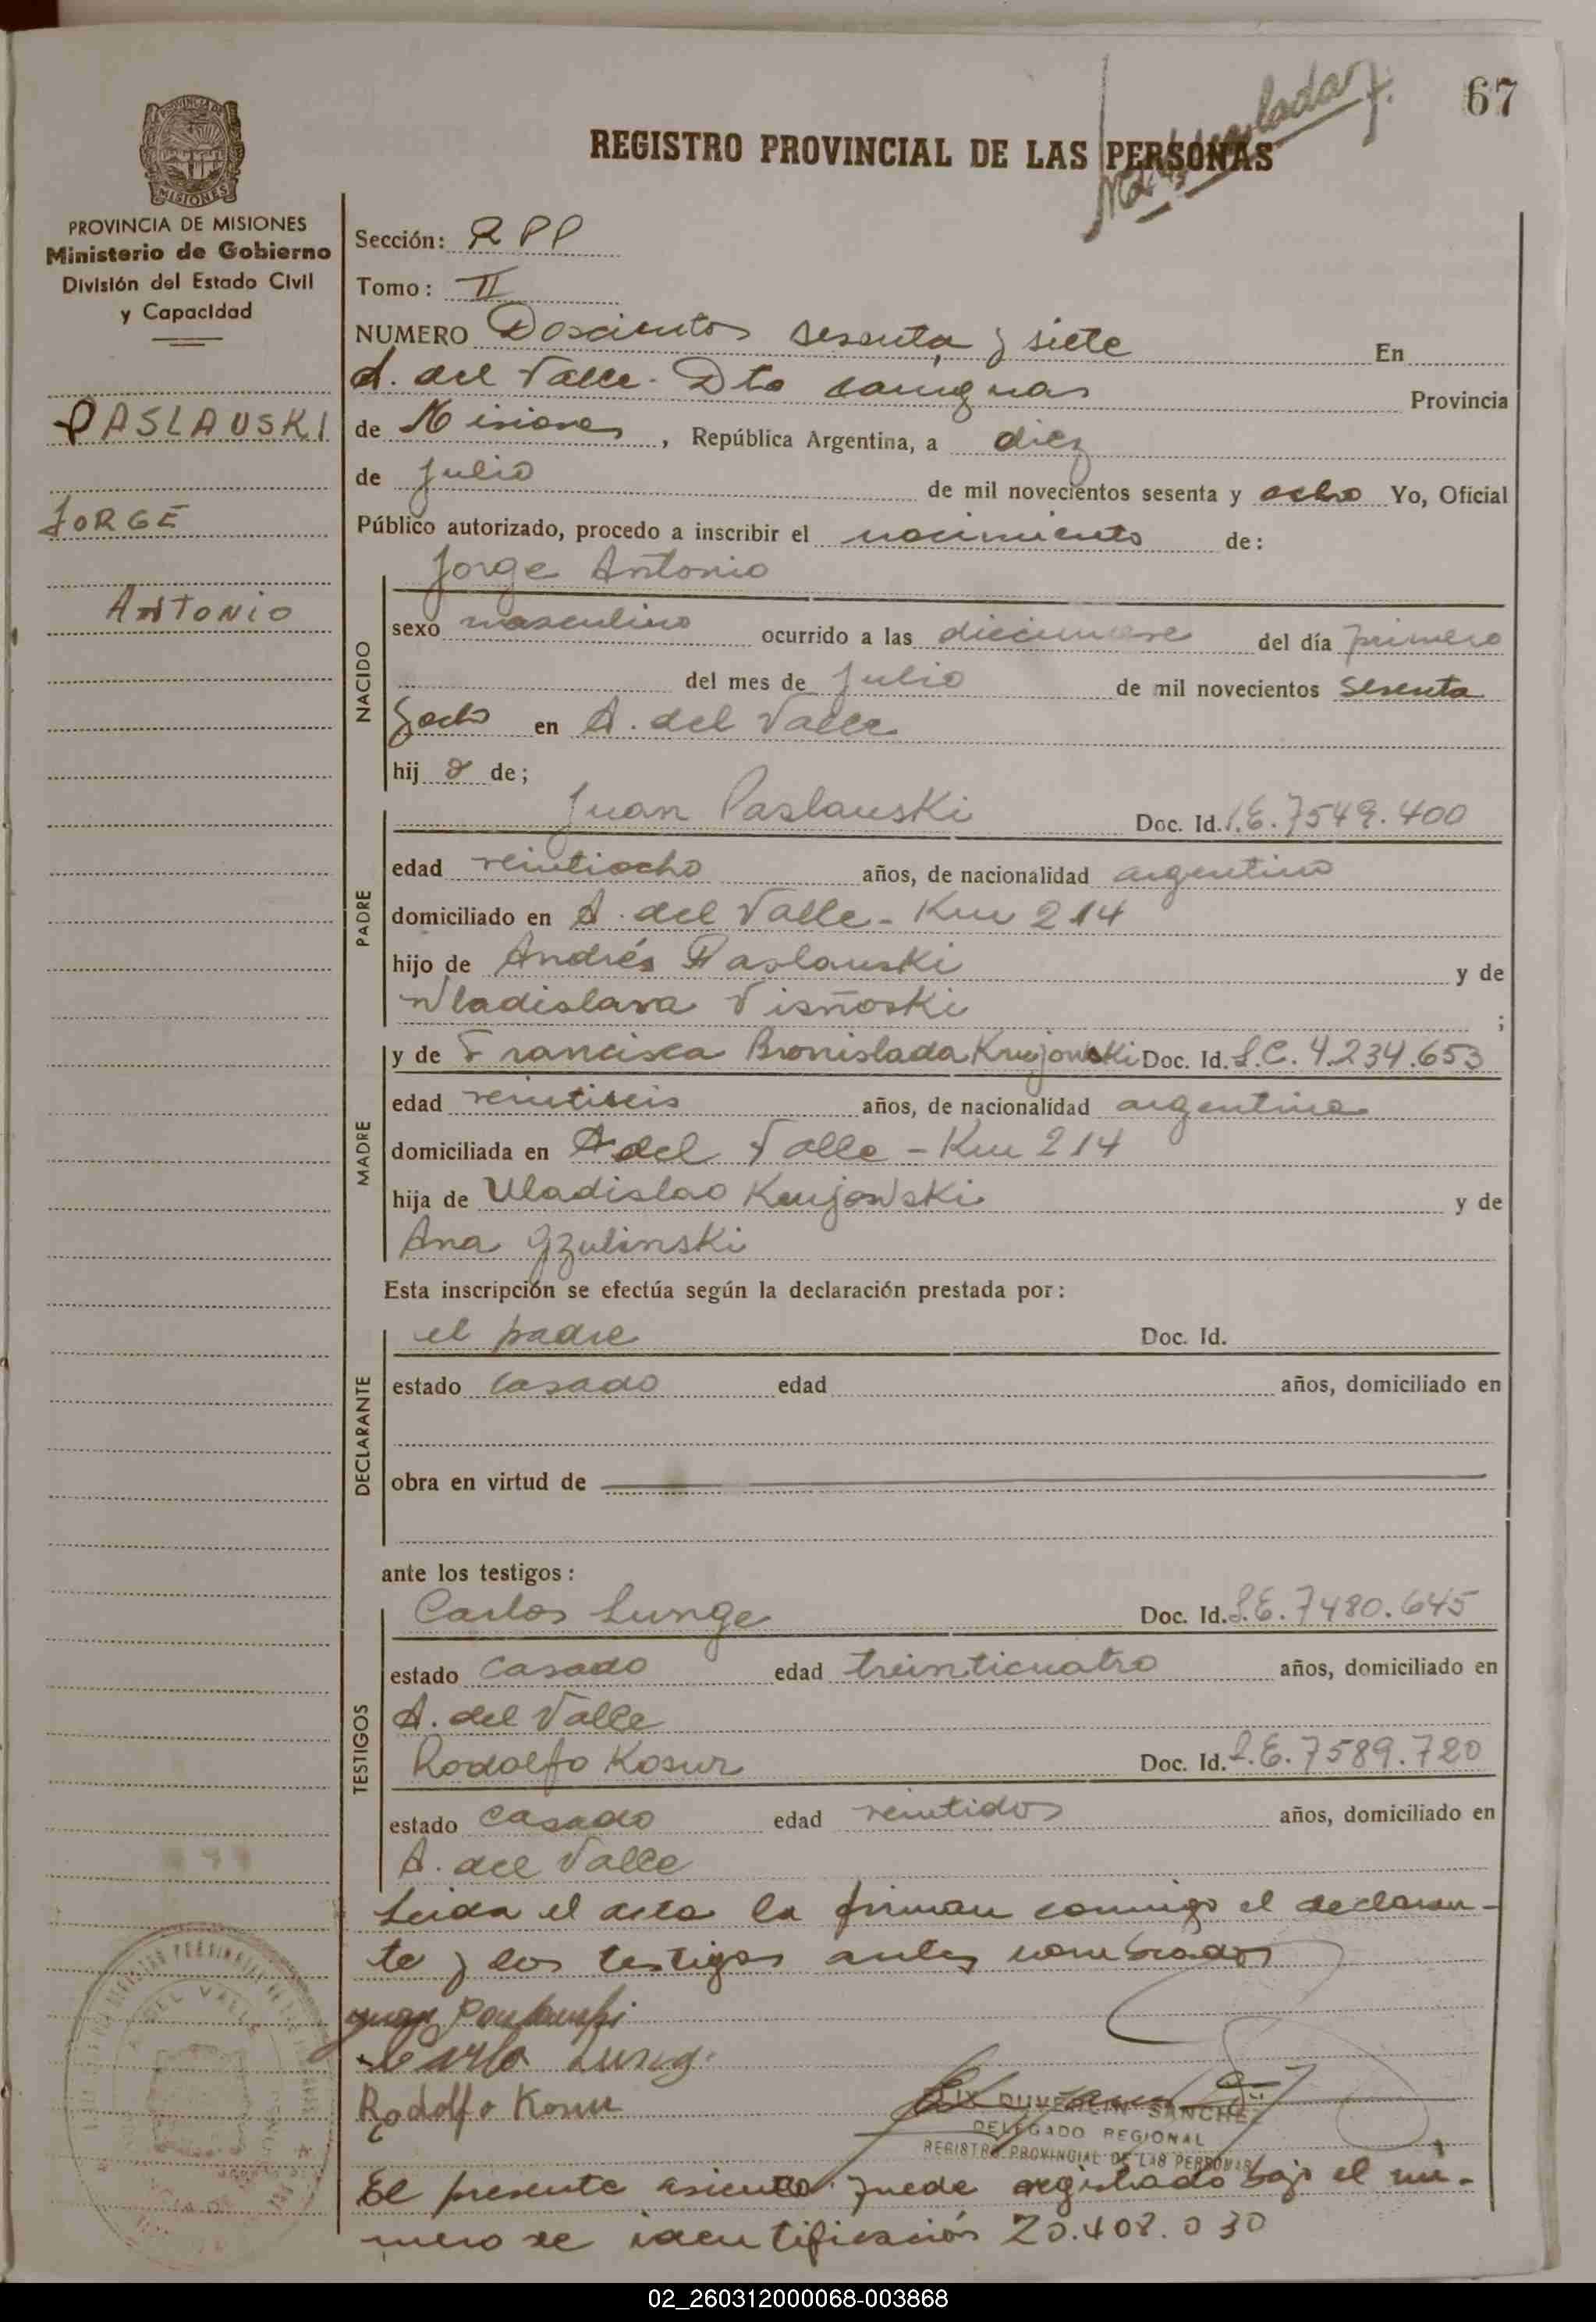 67
REGISTRO PROVINCIAL DE LAS PERSONAS
PROVINCIA DE MISIONES
Ministerio de Gobierno
División del Estado Civil
y Capacidad
PASLAUSKI
JORGE
ANTONIO
Sección: RPP
Tomo: II
NUMERO Doscientos sesenta y siete En
A. del Valle - Dto Cainguas Provincia
de Misiones, República Argentina, a diez
de julio de mil novecientos sesenta y ocho Yo, Oficial
Público autorizado, procedo a inscribir el nacimiento de:
NACIDO
Jorge Antonio
sexo masculino ocurrido a las diecinueve del día primero
del mes de julio de mil novecientos sesenta
y ocho en A. del Valle
hijo de;
PADRE
Juan Paslauski Doc. Id. L.E. 7549.400
edad veintiocho años, de nacionalidad argentino
domiciliado en A. del Valle - Km 214
hijo de Andrés Paslauski y de
Wladislava Visñoski ;
MADRE
y de Francisca Bronislada Krujowski Doc. Id. L.C. 4.234.653
edad veintiseis años, de nacionalidad argentina
domiciliada en A del Valle - Km 214
hija de Uladislao Krujowski y de
Ana Gzulinski
Esta inscripción se efectúa según la declaración prestada por:
DECLARANTE
el padre Doc. Id.
estado casado edad años, domiciliado en
obra en virtud de
ante los testigos:
TESTIGOS
Carlos Lunge Doc. Id. L.E. 7480.645
estado casado edad treinticuatro años, domiciliado en
A. del Valle
Rodolfo Kosur Doc. Id. L.E. 7589.720
estado casado edad veintidos años, domiciliado en
A. del Valle
Leida el acta la firman conmigo el declaran-
te y los testigos antes nombrados
Carlo Lung
Rodolfo Kosur
SANCHEZ
DELEGADO REGIONAL
REGISTRO PROVINCIAL DE LAS PERSONAS
El presente asiento puede registrado bajo el nú-
mero de identificación 20.408.030
02_260312000068-003868